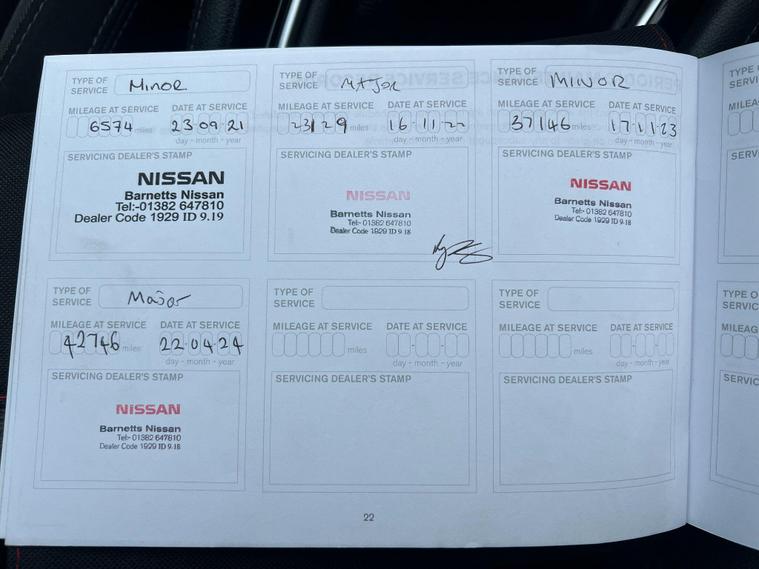 TYPE OF SERVICE Minor
MILEAGE AT SERVICE DATE AT SERVICE
6574 miles 23 09 21
day - month - year
SERVICING DEALER'S STAMP
NISSAN
Barnetts Nissan
Tel:-01382 647810
Dealer Code 1929 ID 9.19
TYPE OF SERVICE MAJOR
MILEAGE AT SERVICE DATE AT SERVICE
23129 miles 16-11-22
day - month - year
SERVICING DEALER'S STAMP
NISSAN
Barnetts Nissan
Tel:- 01382 647810
Dealer Code 1929 ID 9-18
TYPE OF SERVICE MINOR
MILEAGE AT SERVICE DATE AT SERVICE
37146 miles 17-11-23
day - month - year
SERVICING DEALER'S STAMP
NISSAN
Barnetts Nissan
Tel:- 01382 647810
Dealer Code 1929 ID 9-18
TYPE OF SERVICE Major
MILEAGE AT SERVICE DATE AT SERVICE
42746 miles 22-04-24
day - month - year
SERVICING DEALER'S STAMP
NISSAN
Barnetts Nissan
Tel:- 01382 647810
Dealer Code 1929 ID 9-18
TYPE OF SERVICE
MILEAGE AT SERVICE DATE AT SERVICE
miles
day - month - year
SERVICING DEALER'S STAMP
TYPE OF SERVICE
MILEAGE AT SERVICE DATE AT SERVICE
miles
day - month - year
SERVICING DEALER'S STAMP
22